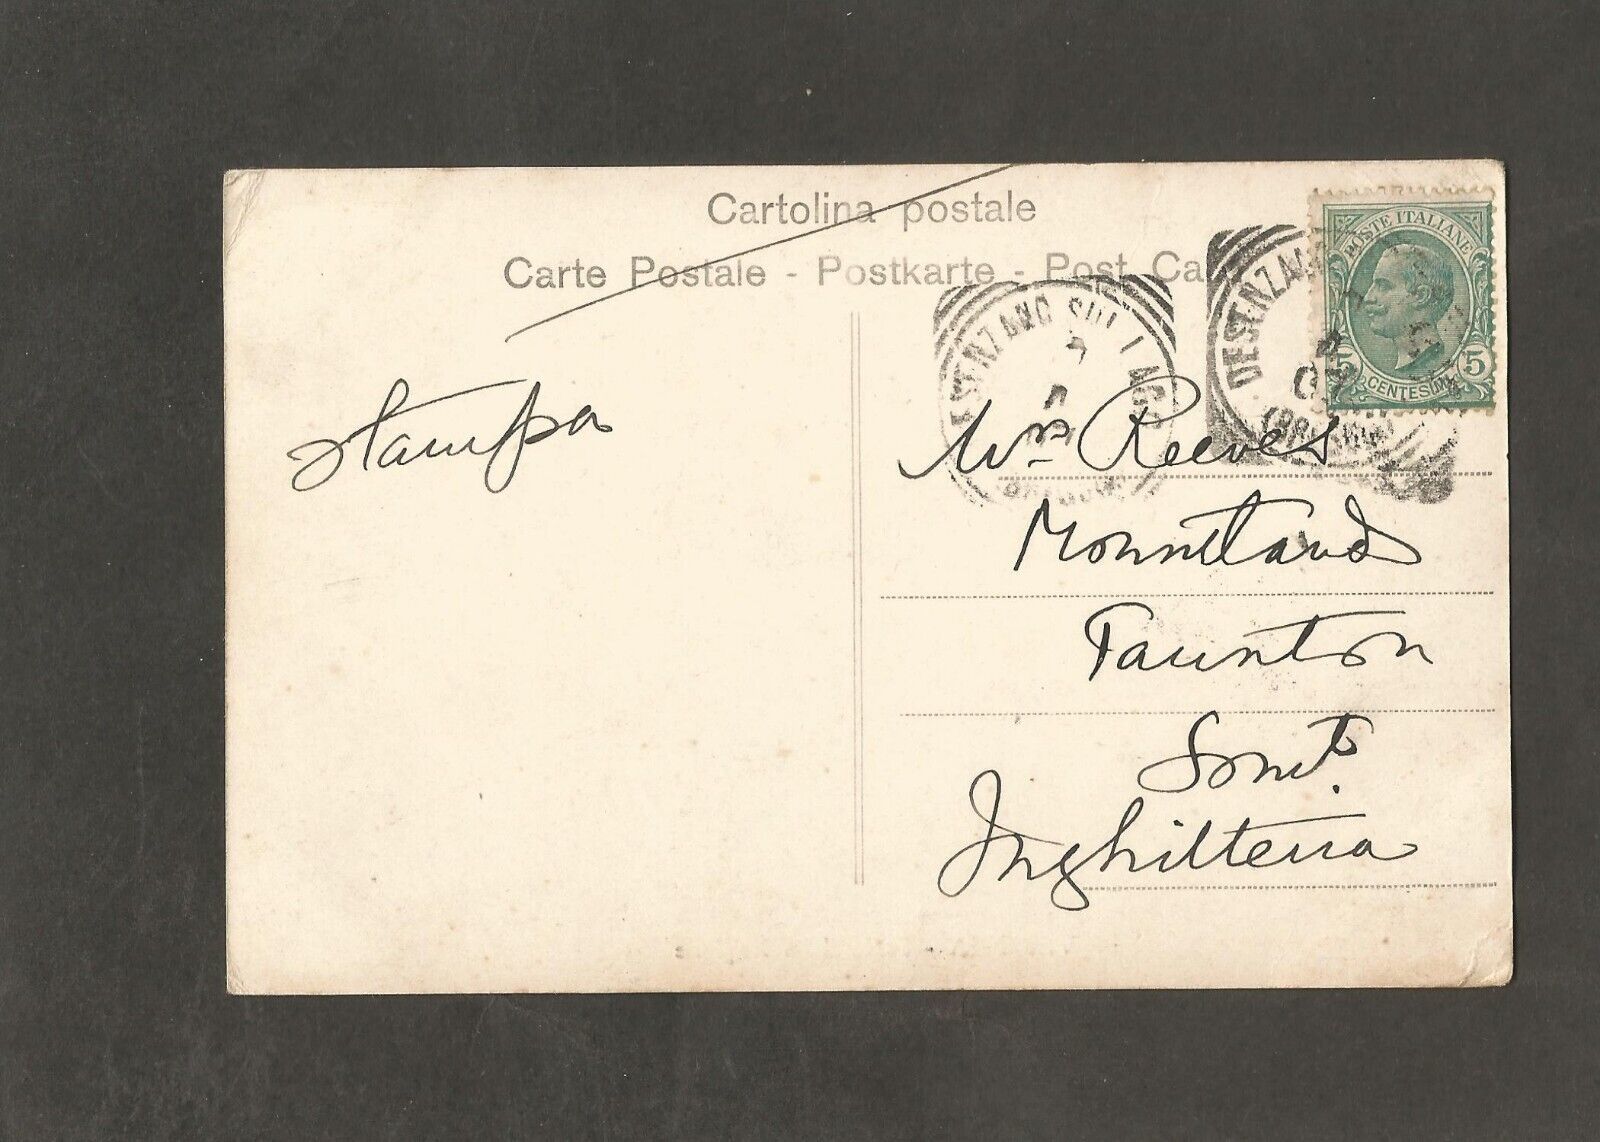 Cartolina postale
Carte Postale - Postkarte - Post Ca
POSTE ITALIANE
5 5
CENTESIMI
DESENZANO
(BRESCIA)
ESENZANO SUL LAGO
Stampa
Mrs Reeves
Taunton
Somt.
Inghilterra